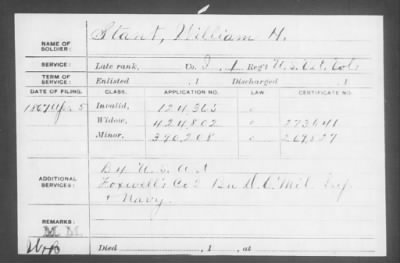 NAME OF SOLDIER: Stant, William H.
SERVICE: Late rank, Co. I, 1 Reg't U.S. Vols
TERM OF SERVICE: Enlisted , 1 Discharged , 1
DATE OF FILING. CLASS. APPLICATION NO. LAW. CERTIFICATE NO.
1867 Apr. 5 Invalid, 124,363
Widow, 424,802 273641
Minor, 390,208 269827
ADDITIONAL SERVICES: U.S. Art
Foxwell's Co D.C. Mil. Inf
+ Navy.
REMARKS:
Died , 1 , at